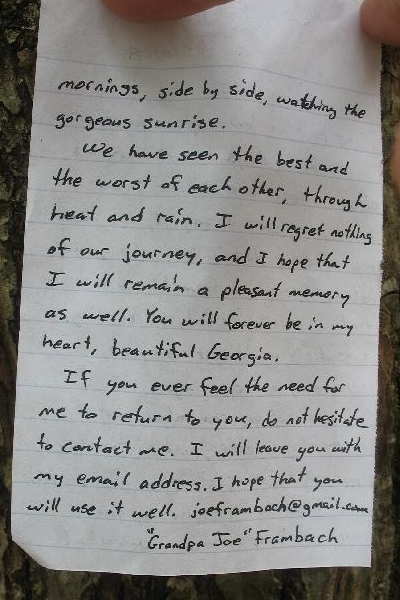 mornings, side by side, watching the
gorgeous sunrise.
We have seen the best and
the worst of each other, through
heat and rain. I will regret nothing
of our journey, and I hope that
I will remain a pleasant memory
as well. You will forever be in my
heart, beautiful Georgia.
If you ever feel the need for
me to return to you, do not hesitate
to contact me. I will leave you with
my email address. I hope that you
will use it well. joeframbach@gmail.com
"Grandpa Joe" Frambach